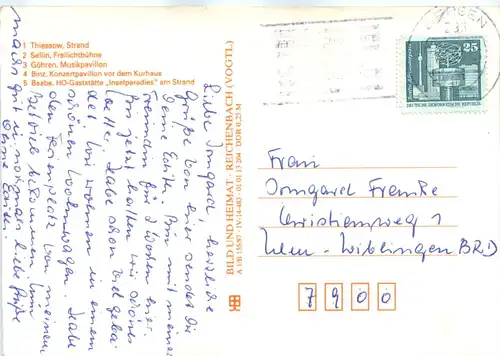 1 Thiessow, Strand
2 Sellin, Freilichtbühne
3 Göhren, Musikpavillon
4 Binz, Konzertpavillon vor dem Kurhaus
5 Baabe, HO-Gaststätte „Inselparadies" am Strand
Liebe Irmgard, herzliche
Grüße von hier sendet Dir
Deine Edith. Bin mit meiner
Freundin für 2 Wochen hier.
Bis jetzt hatten wir schönes
Wetter. Habe schon viel geba-
det. Wir wohnen in einem
schönen Wohnwagen. Habe
den Ferienplatz von meinem
Betrieb bekommen. Nun
mach's gut u. nochmals liebe Grüße
Deine Edith
BILD UND HEIMAT · REICHENBACH (VOGTL)
A 1/B 155/87 · IV-14-483 · 01 01 13 204 · DDR 0,25 M
25
DEUTSCHE DEMOKRATISCHE REPUBLIK
Frau
Irmgard Franke
Christiemweg 1
Ulm-Wiblingen BRD
7900